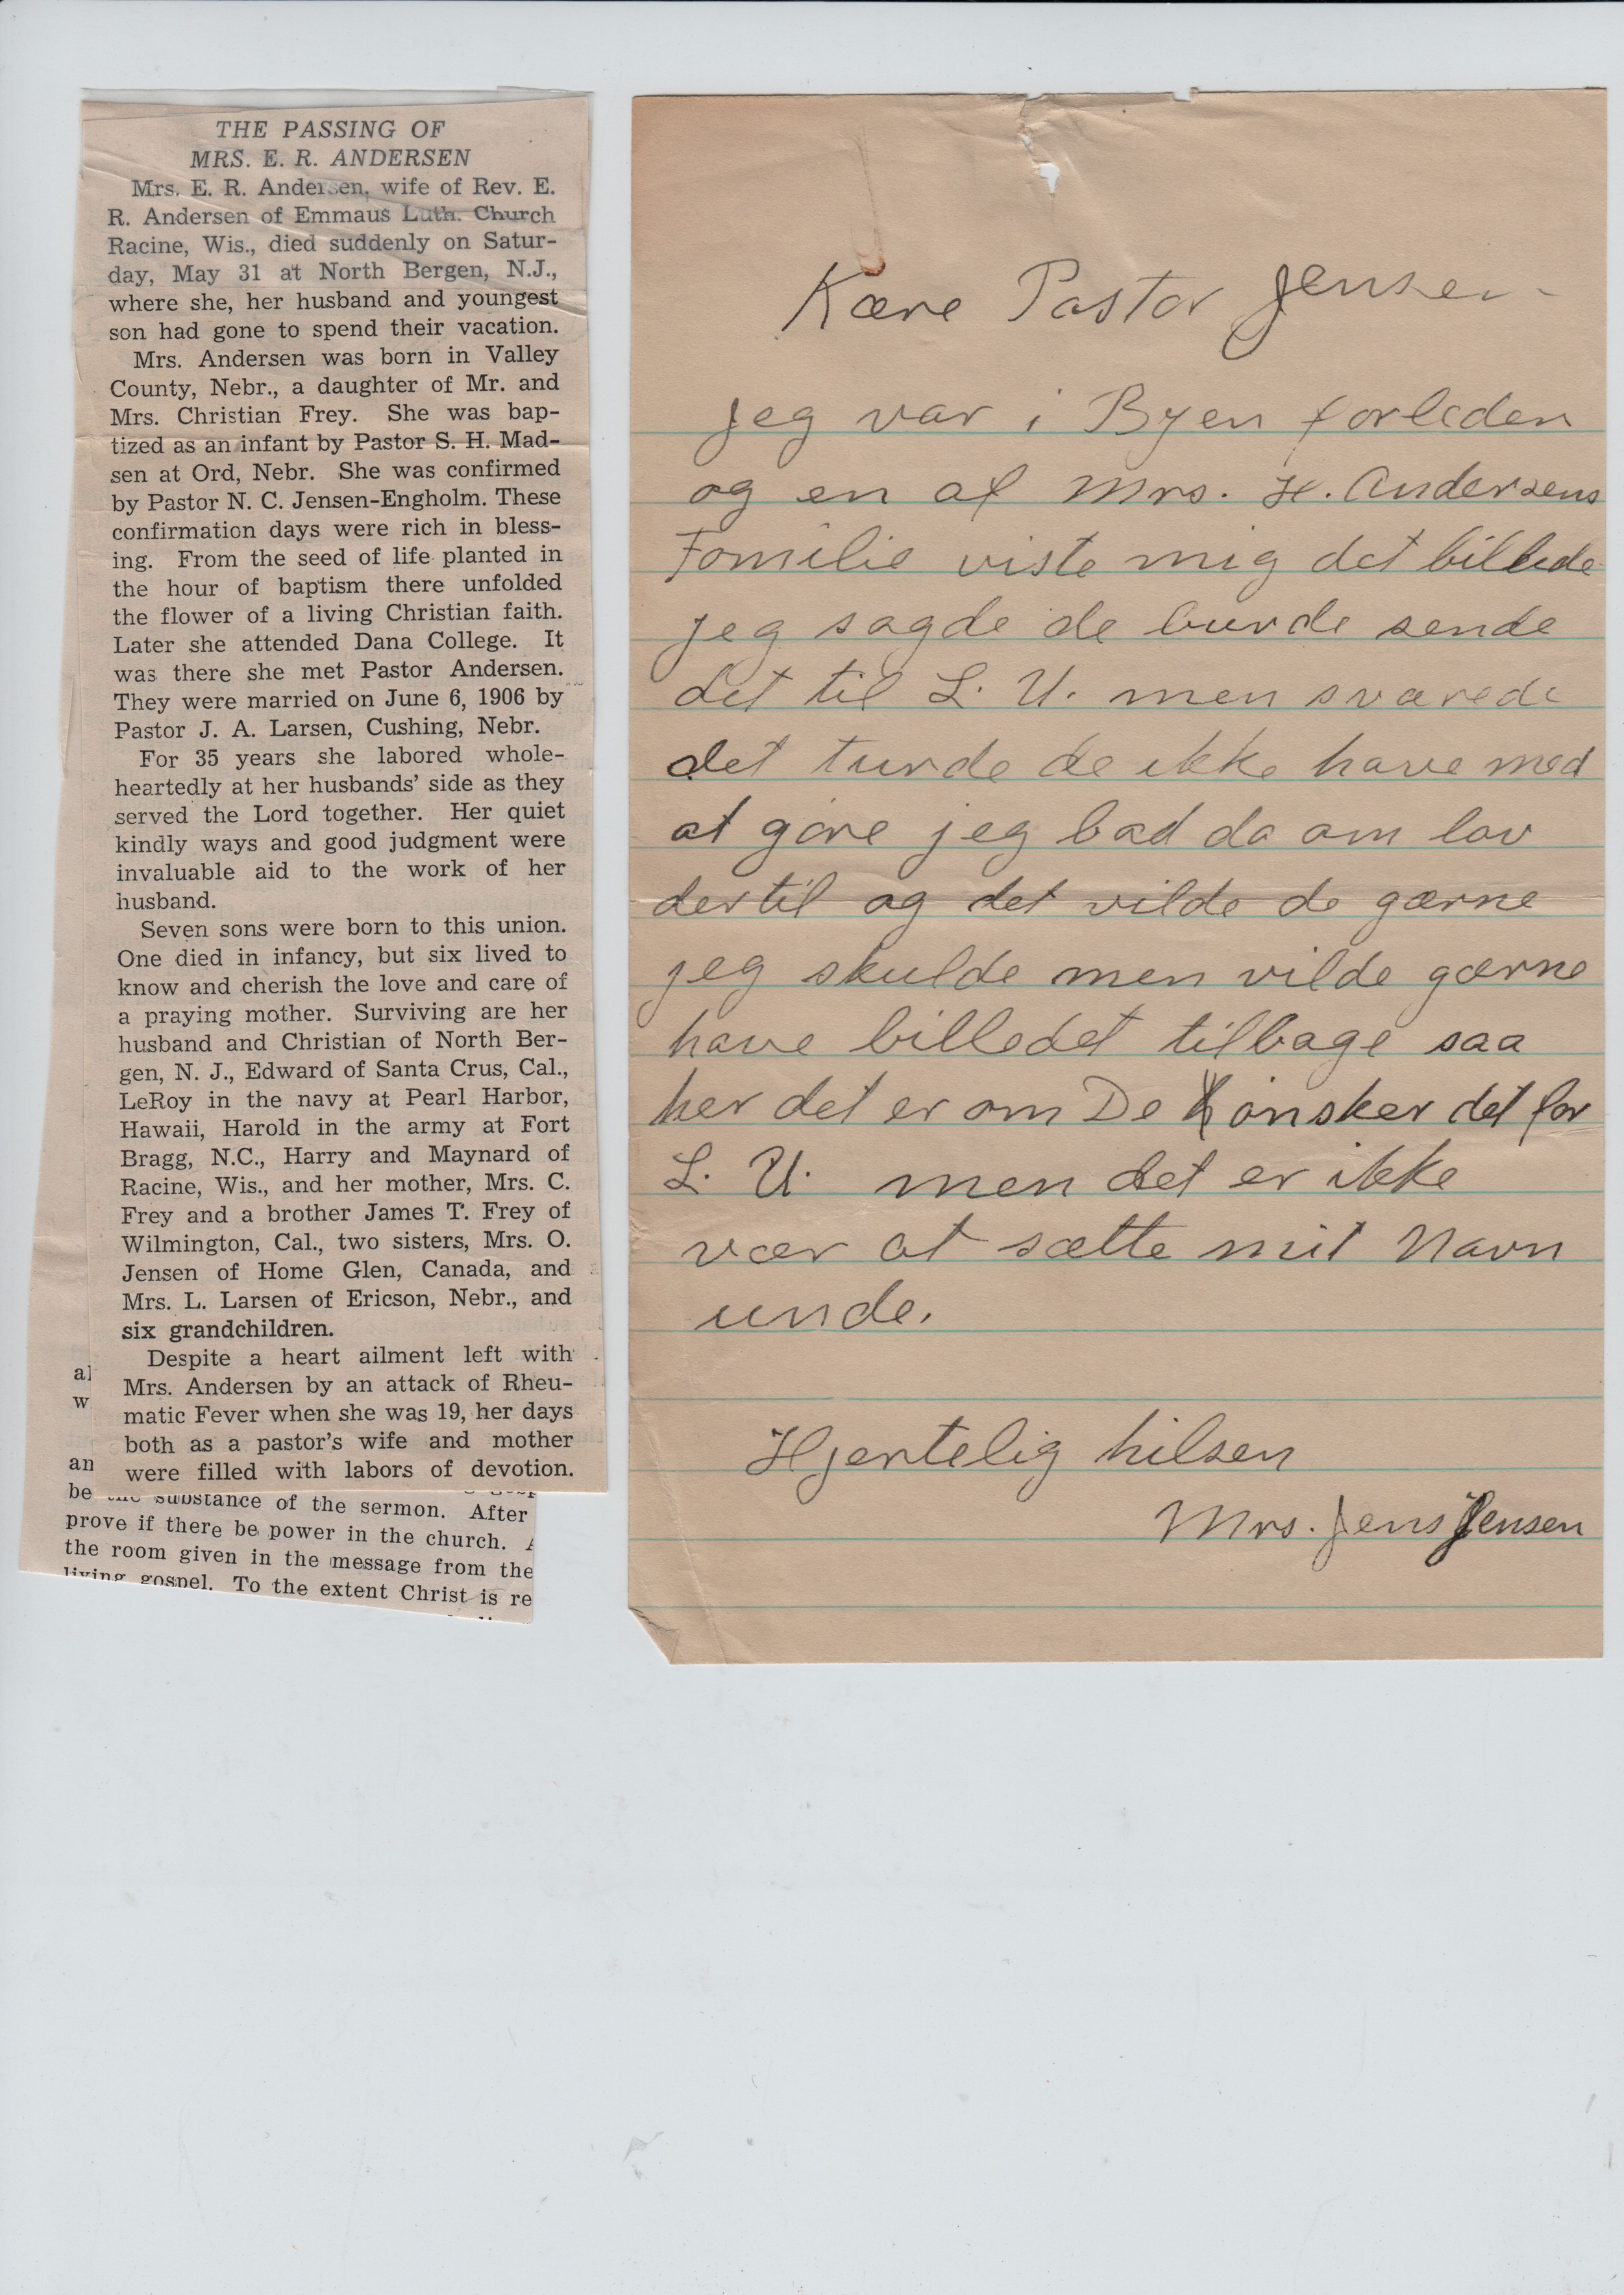 THE PASSING OF
MRS. E. R. ANDERSEN
Mrs. E. R. Andersen, wife of Rev. E.
R. Andersen of Emmaus Luth. Church
Racine, Wis., died suddenly on Satur-
day, May 31 at North Bergen, N.J.,
where she, her husband and youngest
son had gone to spend their vacation.
Mrs. Andersen was born in Valley
County, Nebr., a daughter of Mr. and
Mrs. Christian Frey. She was bap-
tized as an infant by Pastor S. H. Mad-
sen at Ord, Nebr. She was confirmed
by Pastor N. C. Jensen-Engholm. These
confirmation days were rich in bless-
ing. From the seed of life planted in
the hour of baptism there unfolded
the flower of a living Christian faith.
Later she attended Dana College. It
was there she met Pastor Andersen.
They were married on June 6, 1906 by
Pastor J. A. Larsen, Cushing, Nebr.
For 35 years she labored whole-
heartedly at her husbands' side as they
served the Lord together. Her quiet
kindly ways and good judgment were
invaluable aid to the work of her
husband.
Seven sons were born to this union.
One died in infancy, but six lived to
know and cherish the love and care of
a praying mother. Surviving are her
husband and Christian of North Ber-
gen, N. J., Edward of Santa Crus, Cal.,
LeRoy in the navy at Pearl Harbor,
Hawaii, Harold in the army at Fort
Bragg, N.C., Harry and Maynard of
Racine, Wis., and her mother, Mrs. C.
Frey and a brother James T. Frey of
Wilmington, Cal., two sisters, Mrs. O.
Jensen of Home Glen, Canada, and
Mrs. L. Larsen of Ericson, Nebr., and
six grandchildren.
Despite a heart ailment left with
Mrs. Andersen by an attack of Rheu-
matic Fever when she was 19, her days
both as a pastor's wife and mother
were filled with labors of devotion.
al
w
an
be the substance of the sermon. After
prove if there be power in the church.
the room given in the message from the
living gospel. To the extent Christ is re
Kære Pastor Jensen
Jeg var i Byen forleden
og en af Mrs. H. Andersens
Familie viste mig det billede
jeg sagde de burde sende
det til L. U. men svarede
det turde de ikke have med
at gøre jeg bad da om lov
dertil og det vilde de gærne
jeg skulde men vilde gærne
have billedet tilbage saa
her det er om De ønsker det for
L. U. men det er ikke
vær at sætte mit Navn
unde.
Hjertelig hilsen
Mrs. Jens Jensen